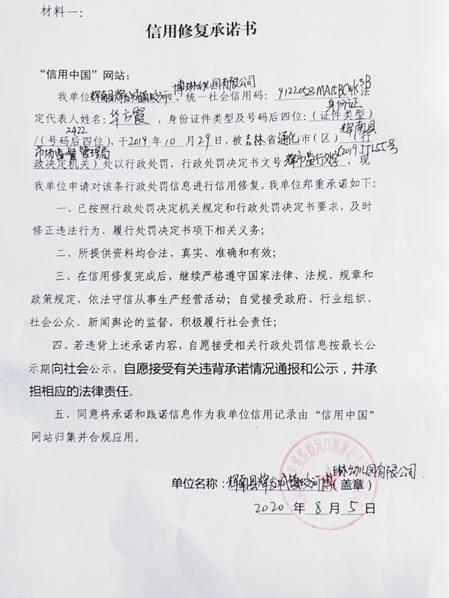 材料一：
信用修复承诺书
“信用中国”网站：
我单位辉南县辉发城镇蛟河口博琳幼儿园有限公司，统一社会信用码：法
定代表人姓名：华云霞，身份证件类型及号码后四位：（证件类型）身份证
/（号码后四位）2422，于2019年10月29日，被吉林省通化市（区）辉南县（行
政决定机关）市场监督管理局处以行政处罚，行政处罚决定书文号，现
我单位申请对该条行政处罚信息进行信用修复，我单位郑重承诺如下：
一、已按照行政处罚决定机关规定和行政处罚决定书要求，及时
修正违法行为、履行处罚决定书项下相关义务；
二、所提供资料均合法、真实、准确和有效；
三、在信用修复完成后，继续严格遵守国家法律、法规、规章和
政策规定，依法守信从事生产经营活动；自觉接受政府、行业组织、
社会公众、新闻舆论的监督，积极履行社会责任；
四、若违背上述承诺内容，自愿接受相关行政处罚信息按最长公
示期向社会公示，自愿接受有关违背承诺情况通报和公示，并承
担相应的法律责任。
五、同意将承诺和践诺信息作为我单位信用记录由“信用中国”
网站归集并合规应用。
单位名称：辉南县辉发城镇蛟河口博琳幼儿园有限公司（盖章）
2020年8月5日